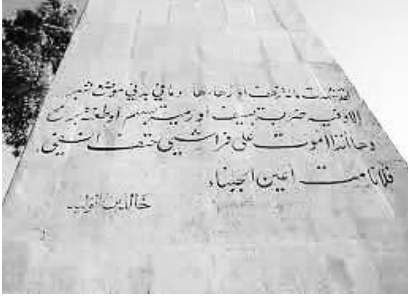 لقد شهدت مائة زحف او زهاءها وما في بدني موضع شبر
الا وفيه ضربة بسيف او رمية بسهم او طعنة برمح
وها انذا اموت على فراشي حتف انفي
فلا نامت اعين الجبناء
خالد بن الوليد